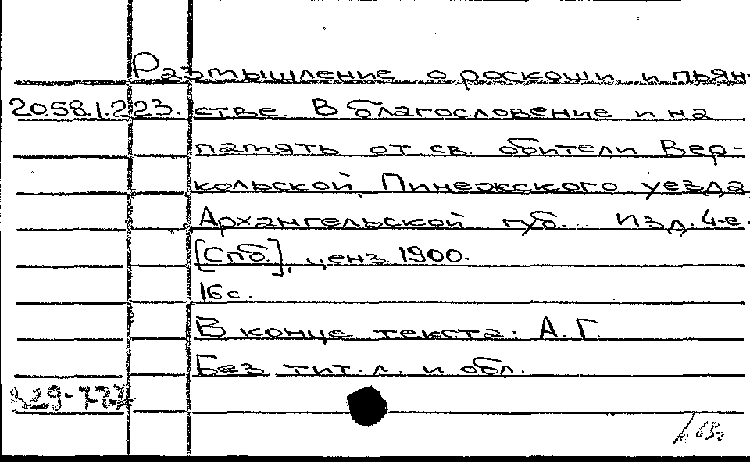 Размышление о роскоши и пьян-
20.58.1.223. стве. В благословение и на
память от св. обители Вер-
кольской, Пинежского уезда
Архангельской губ. Изд. 4-е.
[Спб.], ценз 1900.
16 с.
В конце текста: А. Г.
Без тит. л. и обл.